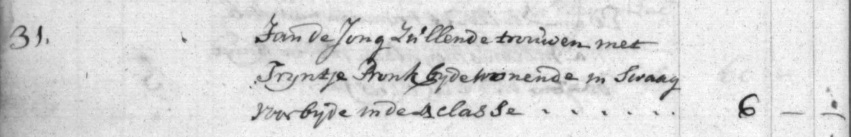 31. Jan de Jong Zullende trouwen met
Tryntje Pronk byde wonende in Swaag
voor byde in de 4 classe . . . . . . 6 — .